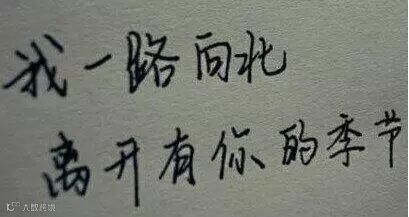 我一路向北
离开有你的季节
大数跨境